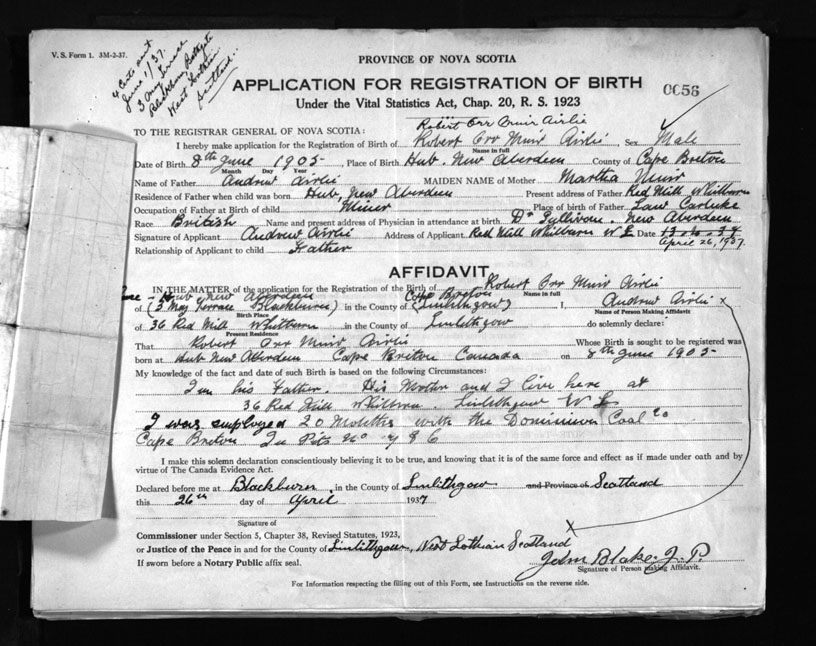 V. S. Form 1. 3M-2-37.
4 Certs sent
June 1/37.
3 May Terrace
Blackburn, Bathgate
West Lothian
Scotland.
PROVINCE OF NOVA SCOTIA
APPLICATION FOR REGISTRATION OF BIRTH
0056
Under the Vital Statistics Act, Chap. 20, R. S. 1923
Robert Orr Muir Airlie
TO THE REGISTRAR GENERAL OF NOVA SCOTIA:
I hereby make application for the Registration of Birth of Robert Orr Muir Airlie, Sex Male
Name in full
Date of Birth 8th June 1905, Place of Birth Hub. New Aberdeen County of Cape Breton
Month Day Year
Name of Father Andrew Airlie MAIDEN NAME of Mother Martha Muir
Residence of Father when child was born Hub, New Aberdeen Present address of Father Red Mill Whitburn
Occupation of Father at Birth of child Miner Place of birth of Father Law Carluke
Race British Name and present address of Physician in attendance at birth Dr New Aberdeen
Signature of Applicant Andrew Airlie Address of Applicant Red Mill Whitburn W L Date 13-10-34
April 26, 1937.
Relationship of Applicant to child Father
AFFIDAVIT
IN THE MATTER of the application for the Registration of the Birth of Robert Orr Muir Airlie
Name in full
Hub New Aberdeen Cape Breton
of (3 May Terrace Blackburn) in the County of (Linlithgow) I, Andrew Airlie x
Birth Place Name of Person Making Affidavit
of 36 Red Mill Whitburn in the County of Linlithgow do solemnly declare:
Present Residence
That Robert Orr Muir Airlie Whose Birth is sought to be registered was
born at Hub New Aberdeen Cape Breton Canada on 8th June 1905
My knowledge of the fact and date of such Birth is based on the following Circumstances:
I am his Father. His Mother and I live here at
36 Red Mill Whitburn. Linlithgow W L
I was employed 20 Months with the Dominion Coal Co
Cape Breton In Pits No 4 & 6
I make this solemn declaration conscientiously believing it to be true, and knowing that it is of the same force and effect as if made under oath and by
virtue of The Canada Evidence Act.
Declared before me at Blackburn in the County of Linlithgow and Province of Scotland
this 26th day of April 1937
Signature of
Commissioner under Section 5, Chapter 38, Revised Statutes, 1923,
or Justice of the Peace in and for the County of Linlithgow, West Lothian Scotland x
If sworn before a Notary Public affix seal. John Blake. J. P.
Signature of Person making Affidavit.
For Information respecting the filling out of this Form, see Instructions on the reverse side.